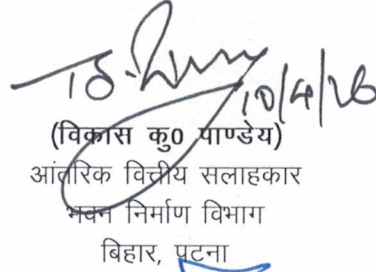 10/4/26
(विकास कु0 पाण्डेय)
आंतरिक वित्तीय सलाहकार
भवन निर्माण विभाग
बिहार, पटना